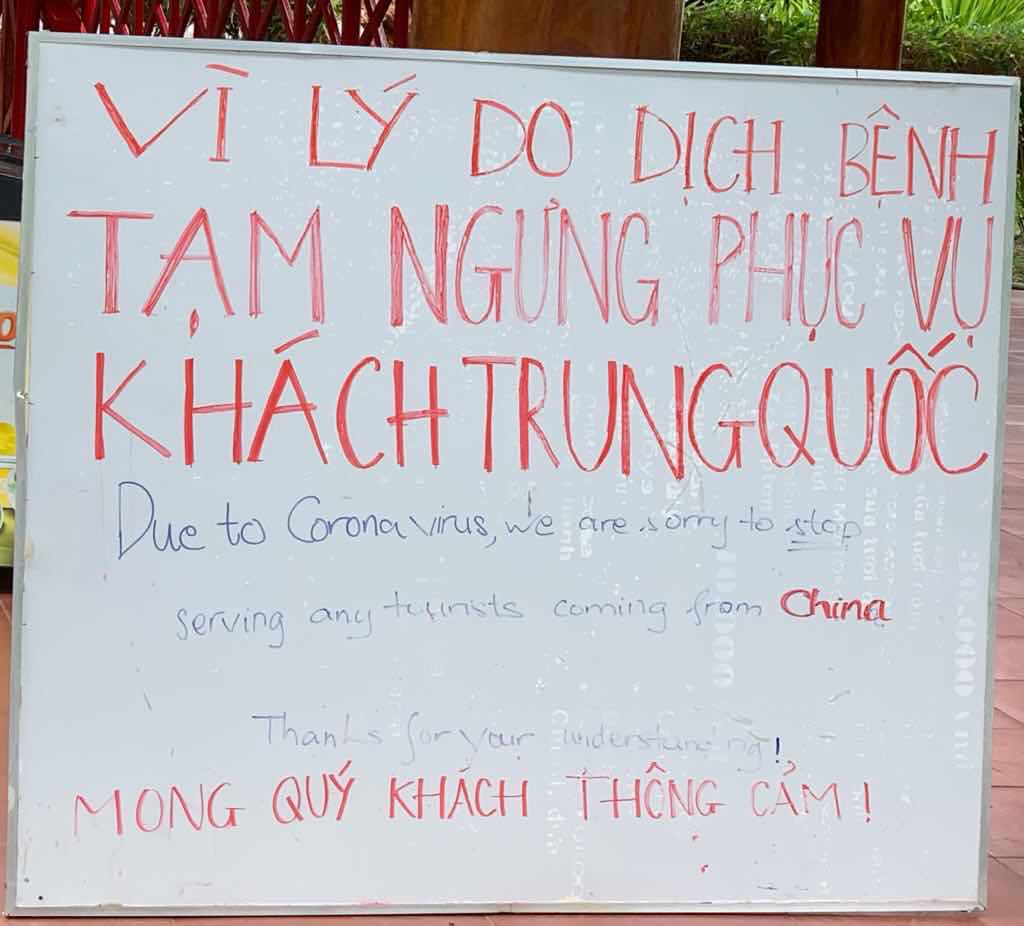 VÌ LÝ DO DỊCH BỆNH
TẠM NGƯNG PHỤC VỤ
KHÁCH TRUNG QUỐC
Due to Coronavirus, we are sorry to stop
serving any tuirists coming from China
Thanks for your understanding!
MONG QUÝ KHÁCH THÔNG CẢM!